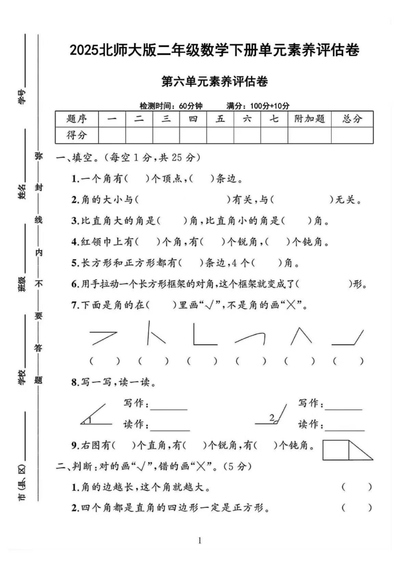 2025北师大版二年级数学下册单元素养评估卷
第六单元素养评估卷
检测时间：60分钟 满分：100分+10分
题序 一 二 三 四 五 六 七 附加题 总分
得分
一、填空。(每空1分,共25分)
1.一个角有( )个顶点,( )条边。
2.角的大小与( )有关,与( )无关。
3.比直角大的角是( )角,比直角小的角是( )角。
4.红领巾上有( )个角,有( )个锐角,( )个钝角。
5.长方形和正方形都有( )条边,4个( )角。
6.用手拉动一个长方形框架的对角,这个框架就变成了( )形。
7.下面是角的在( )里画“√”,不是角的画“×”。
( ) ( ) ( ) ( ) ( ) ( )
8.写一写,读一读。
1 写作:
读作:
2 写作:
读作:
9.右图有( )个直角,有( )个锐角,有( )个钝角。
二、判断:对的画“√”,错的画“×”。(5分)
1.角的边越长,这个角就越大。 ( )
2.四个角都是直角的四边形一定是正方形。 ( )
1
学号
姓名
班级
学校
市(县、区)
密封线内不要答题